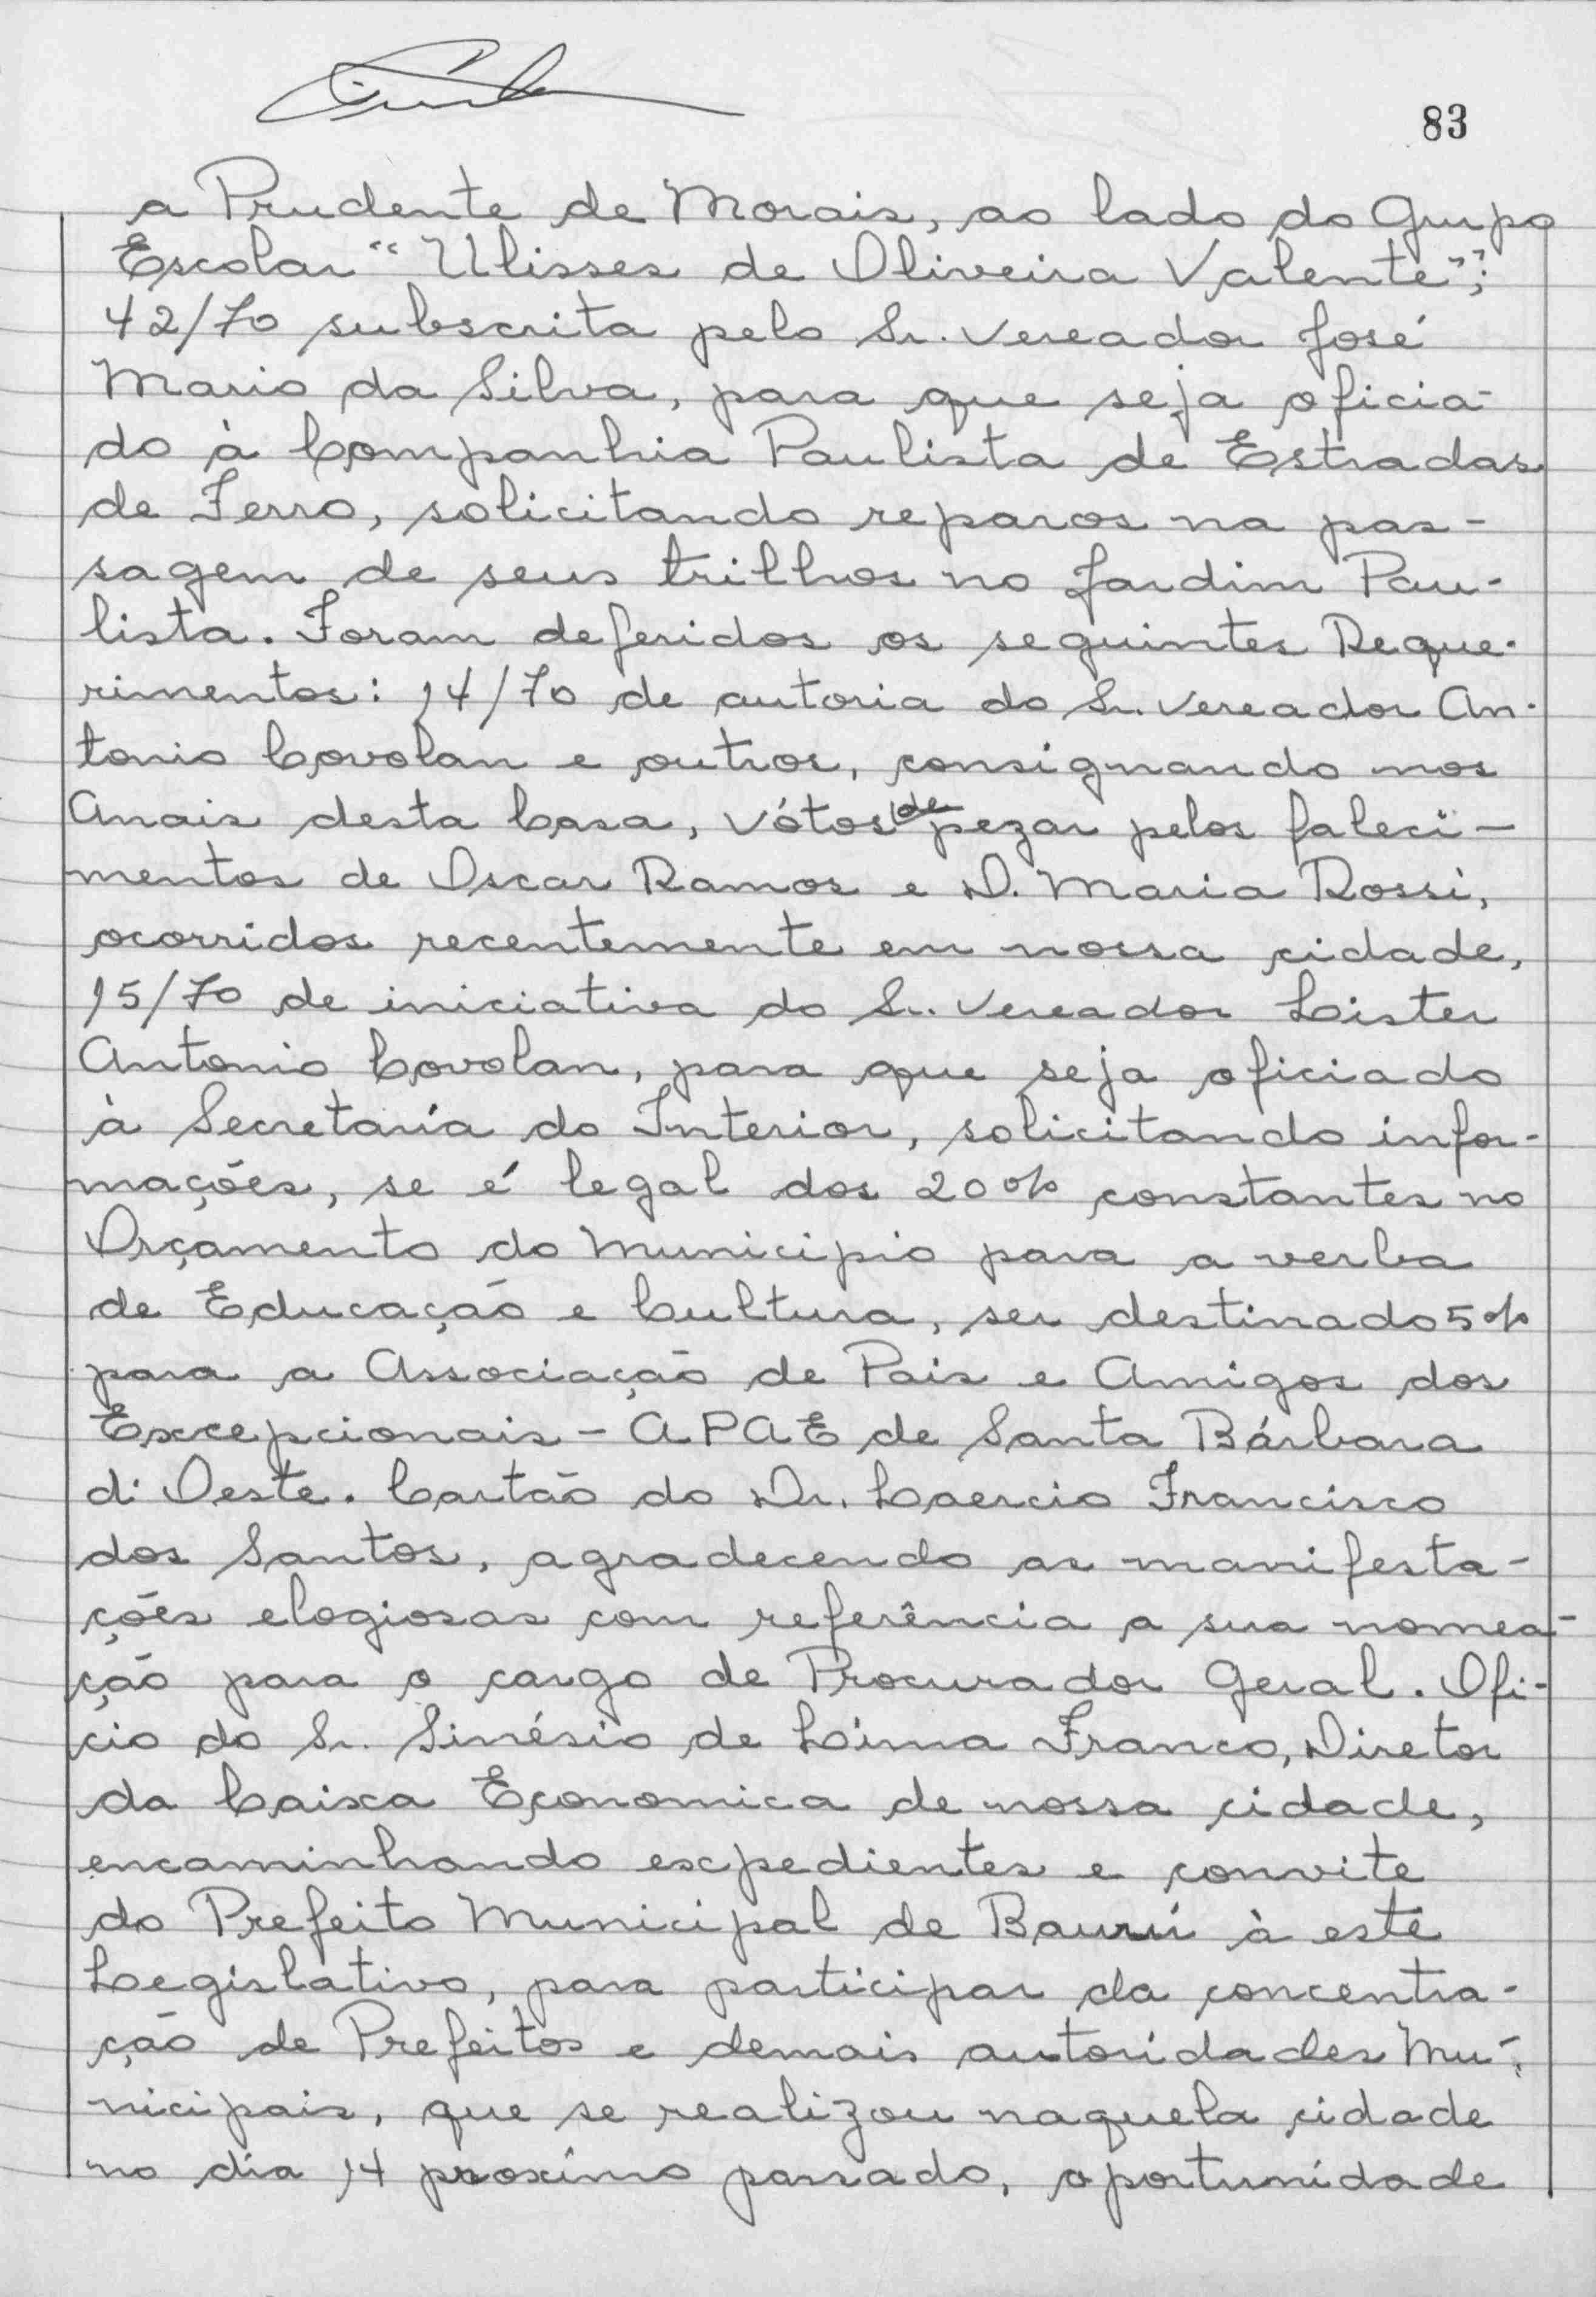 83
a Prudente de Morais, ao lado do Grupo
Escolar "Ulisses de Oliveira Valente";
42/70 subscrita pelo Sr. Vereador José
Mario da Silva, para que seja oficia-
do à Companhia Paulista de Estradas
de Ferro, solicitando reparos na pas-
sagem de seus trilhos no Jardim Pau-
lista. Foram deferidos os seguintes Reque-
rimentos: 14/70 de autoria do Sr. Vereador An-
tonio Covolan e outros, consignando nos
Anais desta Casa, vótos de pezar pelos faleci-
mentos de Oscar Ramos e D. Maria Rossi,
ocorridos recentemente em nossa cidade,
15/70 de iniciativa do Sr. Vereador Lister
Antonio Covolan, para que seja oficiado
à Secretaria do Interior, solicitando infor-
mações, se é legal dos 20% constantes no
Orçamento do Municipio para a verba
de Educação e Cultura, ser destinado 5%
para a Associação de Pais e Amigos dos
Excepcionais - APAE de Santa Bárbara
d'Oeste. Cartão do Dr. Laercio Francisco
dos Santos, agradecendo as manifesta-
ções elogiosas com referência a sua nomea-
ção para o cargo de Procurador Geral. Ofi-
cio do Sr. Sinésio de Lima Franco, Diretor
da Caixa Economica de nossa cidade,
encaminhando expedientes e convite
do Prefeito Municipal de Baurú à este
Legislativo, para participar da concentra-
ção de Prefeitos e demais autoridades Mu-
nicipais, que se realizou naquela cidade
no dia 14 proximo passado, oportunidade